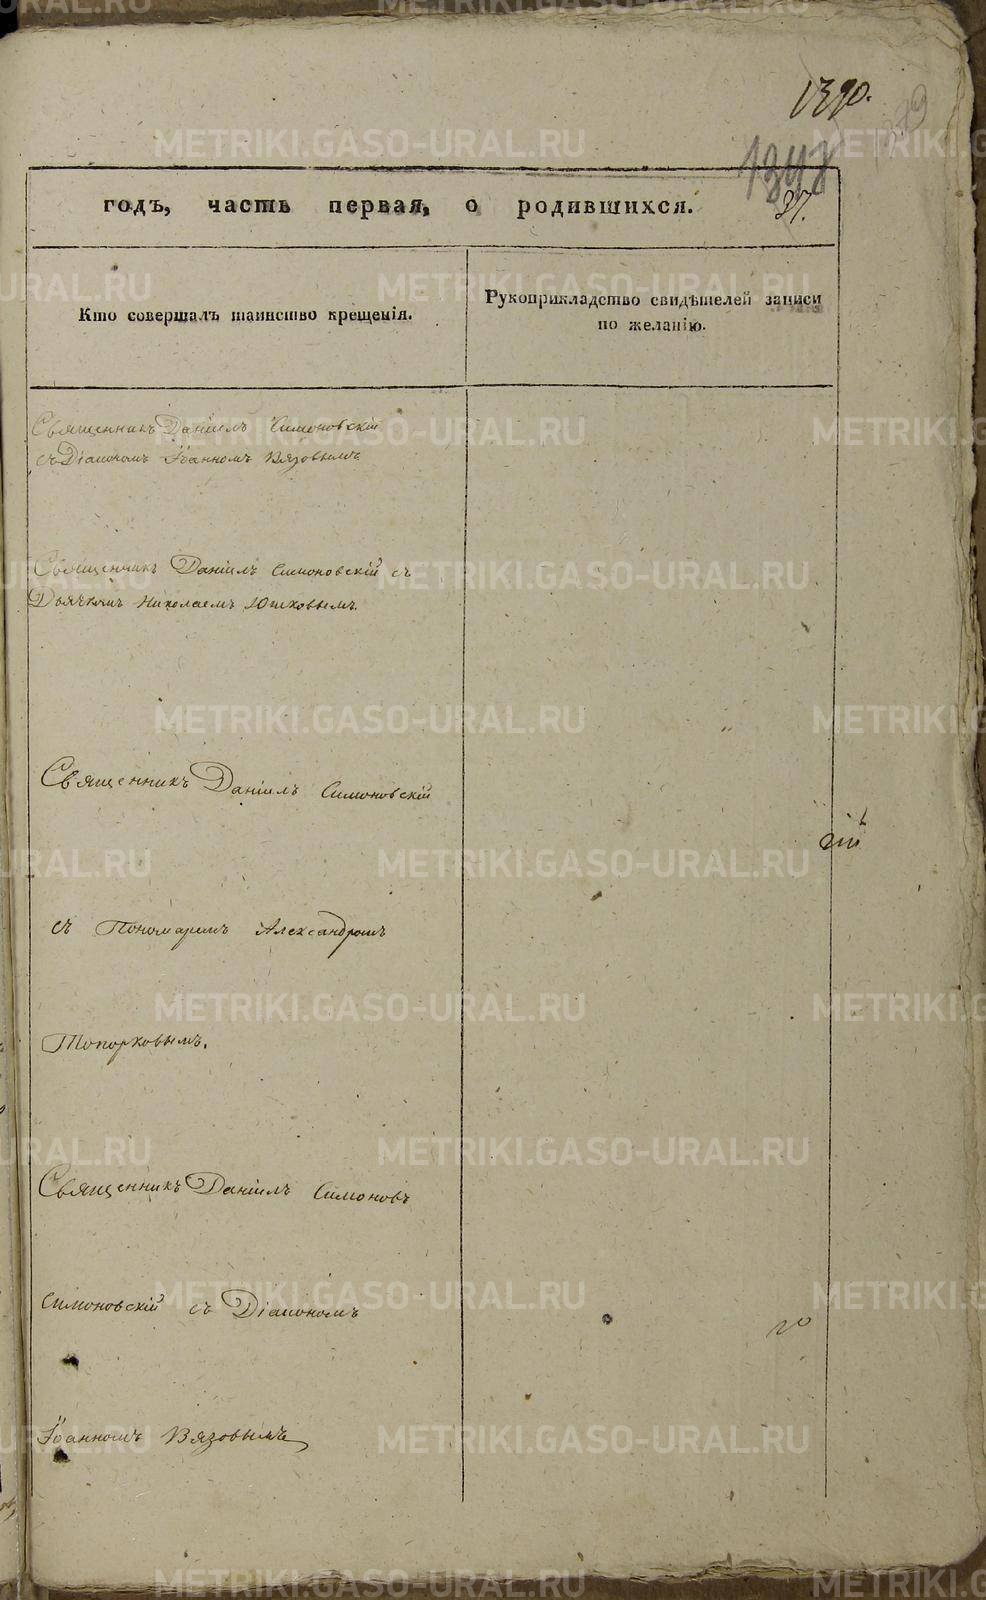 1390.
1347
37.
годъ, часть первая, о родившихся.
Кто совершалъ таинство крещенія.
Рукоприкладство свидѣтелей записи
по желанію.
Священникъ Даніилъ Симоновскій
съ Діакономъ Іоанномъ Вязовымъ
Священникъ Даніилъ Симоновскій съ
Дьячкомъ Николаемъ Юшковымъ.
Священникъ Даніилъ Симоновскій
съ Пономаремъ Александромъ
Топорковымъ.
Священникъ Даніилъ Симоновъ
Симоновскій съ Діакономъ
го
Іоанномъ Вязовымъ
METRIKI.GASO-URAL.RU